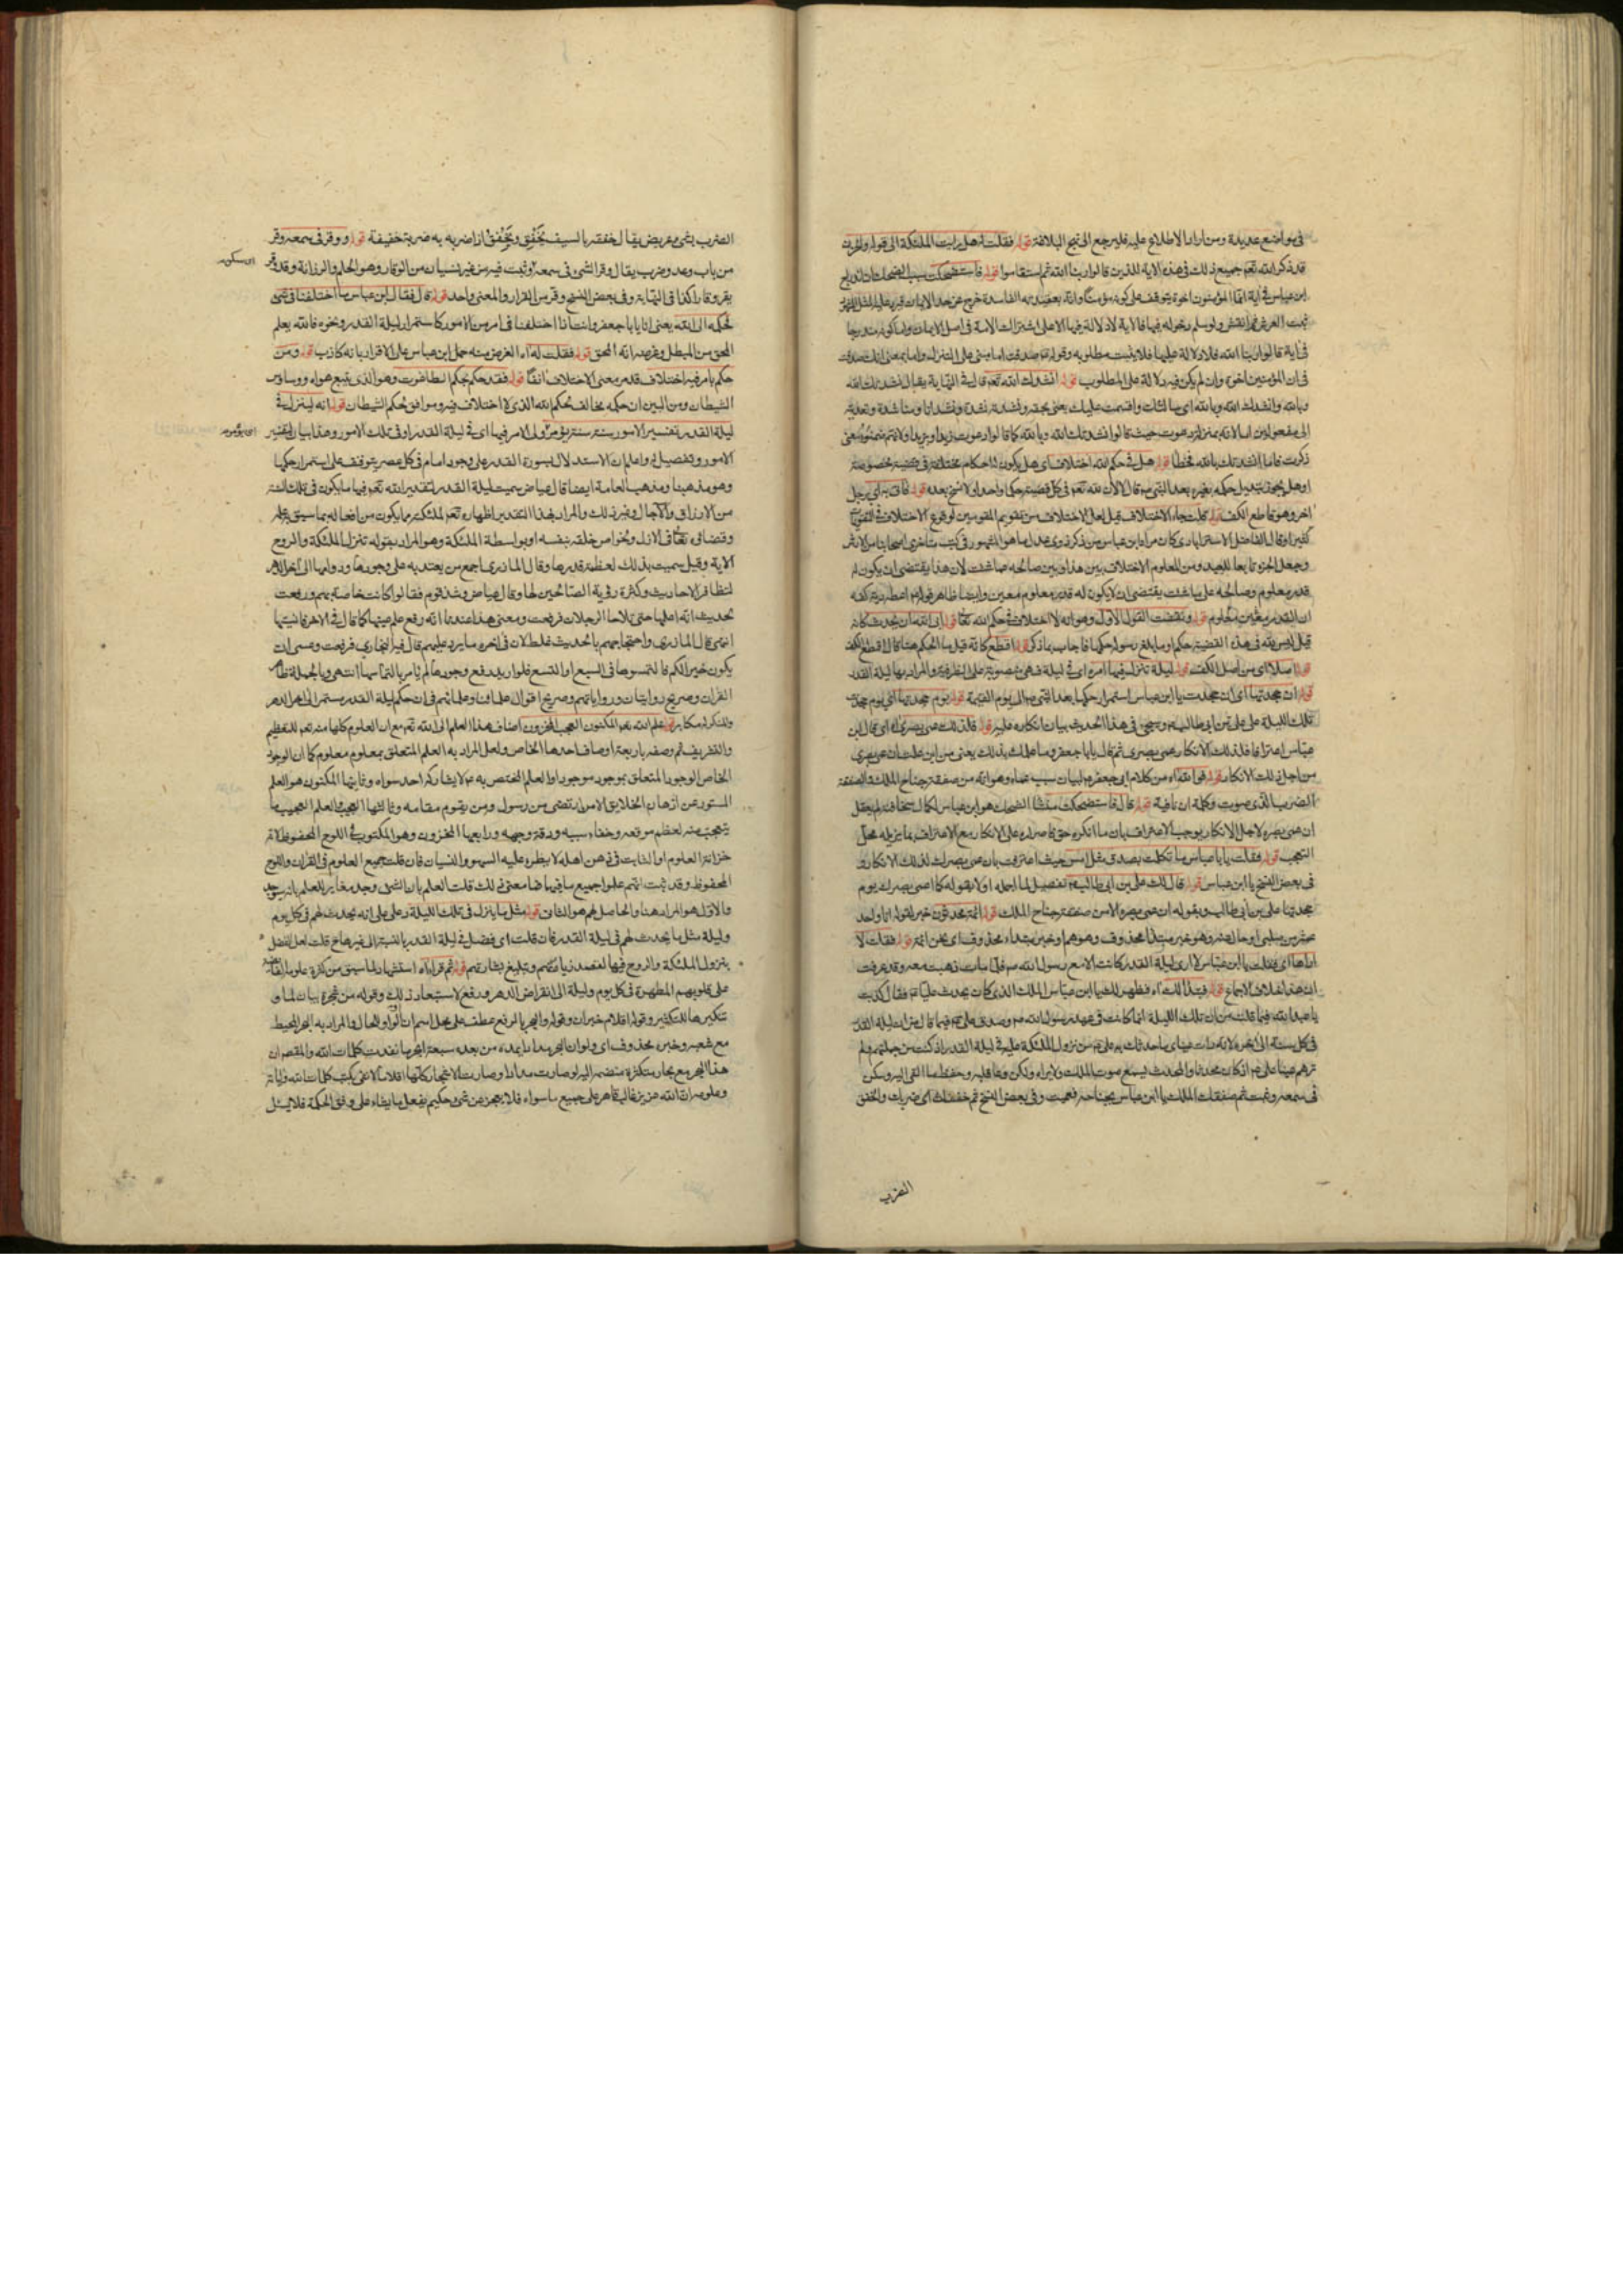 في مواضع عديدة ومن اراد الاطلاع عليه فليرجع الى نهج البلاغة قوله فقلت له هل رايت الملئكة الى قوله والحزن
قد ذكر الله تعم جميع ذلك في هذه الاية للذين قالوا ربنا الله ثم استقاموا قوله فاستضحكت سبب الضحك
ابن عباس في اية انما المؤمنون اخوة يتوقف على كونه مؤمنا وانه بعقيدته الفاسدة خرج عن حد الايمان
ثبت العرش ثم انقش ولو سلم دخوله فيها فالاية لا دلالة فيها الا على اشتراك الامة في اصل الايمان
في اية قالوا ربنا الله فلا دلالة عليها فلا يثبت مطلوبه وقوله صدقت اما مبنى على التنزل واما بمعنى انك صدقت
في ان المؤمنين اخوة وان لم يكن فيه دلالة على المطلوب قوله انشدك الله تعم قال في النهاية يقال نشدتك الله
وبالله وانشدك الله وبالله اى سالتك واقسمت عليك يعنى بحقه ونشدته نشدة ونشدانا ومناشدة وتعديته
الى مفعولين اما لانه بمنزلة دعوت حيث قالوا نشدتك الله وبالله كما قالوا دعوت زيدا وبزيد او لانهم ضمنوه معنى
ذكرت فاما انشدتك بالله فخطا قوله هل في حكم الله اختلاف اى هل يكون له احكام مختلفة في قضية مخصوصة
او هل يجوز تبديل حكمه بغيره بعد النبى ص قال لا لان لله تعم في كل قضية حكما واحدا ولا نسخ بعده قوله فاتى به اى رجل
اخر وهو قاطع الكف قوله قلت جاء الاختلاف قيل لعل الاختلاف من تقويم المقومين لوقوع الاختلاف في التقويم
كثيرا وقال الفاضل الاسترابادى كان مراد ابن عباس من ذكر ذوى عدل ما هو المشهور في كتب متاخرى اصحابنا من الارش
وجعل الحر تابعا للعبد ومن المعلوم الاختلاف بين هذا وبين صالحه ما شئت لان هذا يقتضى ان يكون له
قدر معلوم وصالحه على ما شئت يقتضى ان لا يكون له قدر معلوم معين وايضا ظاهر قولهم اعطه دية كفه
ان القدر معين معلوم قوله ونقضت القول الاول وهو انه لا اختلاف في حكم الله تعالى قوله ابى الله ان يحدث كانه
قيل ليس لله في هذه القضية حكم او ما بلغ رسوله حكمها فاجاب بما ذكر قوله اقطع كانه قيل ما الحكم هنا قال اقطع الكف
قوله اصلا اى من اصل الكف قوله ليلة تنزل فيها امره اى في ليلة فهى منصوبة على الظرفية والمراد بها ليلة القدر
قوله ان جحدتها اى ان جحدت يا ابن عباس استمرار حكمها بعد النبى ص الى يوم القيمة قوله يوم جحدتها اى يوم جحدت
تلك الليلة على على بن ابى طالب ع وسيجئ في هذا الحديث بيان انكاره عليه قوله فلذلك عمى بصرى اه اى قال ابن
عباس اعترافا فلذلك الانكار عمى بصرى ثم قال يا با جعفر وما علمك بذلك يعنى من اين علمت ان عمى بصرى
من اجل ذلك الانكار قوله فوالله اه من كلام ابى جعفر ع لبيان سبب عماه وهو انه من صفقة جناح الملك والصفقة
الضرب الذى له صوت وكلمة ان نافية قوله قال فاستضحكت منشا الضحك هو ابن عباس لكمال سخافته لم يعقل
ان عمى بصره لاجل الانكار يوجب الاعتراف بان ما انكره حق فاصراره على الانكار مع الاعتراف بما يزيله محل
التعجب قوله فقلت يا با عباس ما تكلمت بصدق مثل امس حيث اعترفت بان عمى بصرك لذلك الانكار و
في بعض النسخ يا ابن عباس قوله قال لك على بن ابى طالب ع تفصيل لما اجمله اولا بقوله كما اعمى بصرك يوم
جحدتها على بن ابى طالب وبقوله ان عمى بصره الا من صفقة جناح الملك قوله ائمة محدثون خبر لقوله انا واحد
عشر من صلبى او حال عنه وهو خبر مبتدا محذوف وهو هم او خبر مبتداء محذوف اى نحن ائمة قوله فقلت لا
اراها اى فقلت يا ابن عباس لا ارى ليلة القدر كانت الا مع رسول الله ص فلما مات ذهبت معه وقد عرفت
ان هذا خلاف الاجماع قوله فتبدا لك اه فظهر لك يا ابن عباس الملك الذى كان يحدث عليا ع فقال كذبت
يا عبد الله فيما قلت من ان تلك الليلة انما كانت في عهد رسول الله ص وصدق على ع فيما قال من ان ليلة القدر
في كل سنة الى اخره لانه رات عيناى ما حدثك به على ع من نزول الملئكة عليه في ليلة القدر اذ كنت من جملتهم ولم
ترهم عينا على ع اذ كان محدثا والمحدث يسمع صوت الملك ولا يراه ولكن وعا قلبه وحفظ ما القى اليه وسكن
في سمعه وثبت ثم صفقك الملك يا ابن عباس بجناحه فعميت وفي بعض النسخ ثم خفقك اى ضربك والخفق
الضرب
الضرب بشئ عريض يقال خفقه بالسيف يخفق ويخفق اذا ضربه به ضربة خفيفة قوله ووقر في سمعه وقر
من باب وعد وضرب يقال وقر الشئ في سمعه اى ثبت فيه من غير نسيان من الوقار وهو الحلم والرزانة وقد وقر
اى سكن
يقر وقارا كذا في النهاية وفي بعض النسخ وقر من القرار والمعنى واحد قوله قال فقال ابن عباس ما اختلفنا في شئ
فحكمه الى الله يعنى انا يا با جعفر وانت اذا اختلفنا في امر من الامور كاستمرار ليلة القدر ونحوه فالله يعلم
المحق من المبطل وغرضه انه المحق قوله فقلت له اه الغرض منه حمل ابن عباس على الاقرار بانه كاذب قوله ومن
حكم بامر فيه اختلاف قد مر معنى الاختلاف انفا قوله فقد حكم بحكم الطاغوت وهو الذى يتبع هواه ووساوس
الشيطان ومن البين ان حكمه مخالف لحكم الله الذى لا اختلاف فيه وموافق لحكم الشيطان قوله انه لينزل في
ليلة القدر تفسير الامور سنة سنة يؤمر ولى الامر فيها اى في ليلة القدر او في تلك الامور وهذا بيان لتفسير
الامور وتفصيل له واعلم ان الاستدلال بسورة القدر على وجود امام في كل عصر يتوقف على استمرار حكمها
وهو مذهبنا ومذهب العامة ايضا قال عياض سميت ليلة القدر لتقدير الله تعم فيها ما يكون في تلك السنة
من الارزاق والآجال وغير ذلك والمراد بهذا التقدير اظهاره تعم لملئكته ما يكون من افعاله بما سبق به علمه
وقضاؤه تعالى في الازل ولخواص خلقه بنفسه او بواسطة الملئكة وهو المراد بقوله تنزل الملئكة والروح
الاية وقيل سميت بذلك لعظم قدرها وقال المازرى اجمع من يعتد به على وجودها ودوامها الى اخر الدهر
لتظافر الاحاديث وكثرة رؤية الصالحين لها وقال عياض وشذ قوم فقالوا كانت خاصة بهم ورفعت
لحديث انه اعلمها حتى تلاحا الرجلان فرفعت ومعنى هذا عندنا انه رفع علم عينها كما قال في الاخر فانسيتها
انتهى قال المازرى واحتجاجهم بالحديث غلط لان في اخره ما يرد عليهم قال فيه البخارى فرفعت وعسى ان
يكون خيرا لكم فالتمسوها في السبع او التسع فلو اريد رفع وجودها لم يامر بالتماسها انتهى وبالجملة ظاهر
القران وصريح رواياتنا ورواياتهم وصريح اقوال علمائنا وعلمائهم في ان حكم ليلة القدر مستمر الى اخر الدهر
والمنكر له مكابر قوله علم الله تعم المكنون العجيب المخزون اضاف هذا العلم الى الله تعم مع ان العلوم كلها منه تعم للتعظيم
والتشريف ثم وصفه باربعة اوصاف احدها الخاص ولعل المراد به العلم المتعلق بمعلوم معلوم كما ان الوجود
الخاص الوجود المتعلق بموجود موجود او العلم المختص به ع لا يشاركه احد سواه وثانيها المكنون هو العلم
المستور عن اذهان الخلايق الا من ارتضى من رسول ومن يقوم مقامه وثالثها العجيب والعلم العجيب ما
يتعجب منه لعظم موقعه وخفاء سببه ودقة وجهه ورابعها المخزون وهو المكتوب في اللوح المحفوظ لانه
خزانة العلوم او الثابت في ذهن اهله لا يطرء عليه السهو والنسيان فان قلت جميع العلوم في القران واللوح
المحفوظ وقد ثبت انهم علموا جميع ما فيهما فما معنى ذلك قلت العلم بان الشئ وجد مغاير للعلم بانه سيوجد
والاول هو المراد هنا والحاصل لهم هو الثانى قوله مثل ما ينزل في تلك الليلة دل على انه يحدث لهم في كل يوم
وليلة مثل ما يحدث لهم في ليلة القدر فان قلت اى فضل في ليلة القدر بالنسبة الى غيرها ح قلت لعل الفضل
بنزول الملئكة والروح فيها لقصد زيارتهم وتبليغ بشارتهم قوله ثم قرا اه استشهاد لما سبق من كثرة علومه
على قلوبهم المطهرة في كل يوم وليلة الى انقراض الدهر ورفع لاستبعاد ذلك وقوله من شجرة بيان لما و
تنكيرها للتكثير وقوله اقلام خبر ان وقوله والبحر بالرفع عطف على محل اسم ان او الواو للحال والمراد به البحر المحيط
مع شعبه وخبره محذوف اى ولو ان البحر مداد يمده من بعده سبعة ابحر ما نفدت كلمات الله والمقصود ان
هذا البحر مع بحار متكثرة منضمة اليه لو صارت مدادا وصارت الاشجار كلها اقلاما لا تفى بكتب كلمات الله واياته
وعلومه ان الله عزيز غالب قاهر على جميع ما سواه فلا يعجزه عن شئ حكيم يفعل ما يشاء على وفق الحكمة فلا يسئل